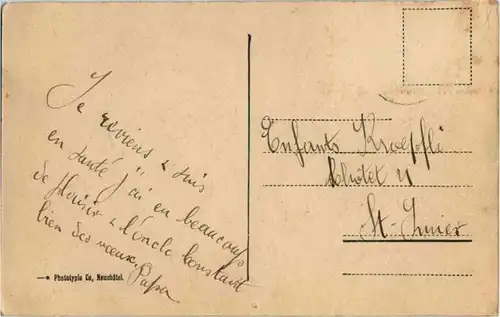 Je reviens & suis
en santé j'ai eu beaucoup
de plaisir & l'oncle Constant
bien des vœux. Papa
Phototypie Co, Neuchâtel.
Enfants Kroepfli
11
St-Imier